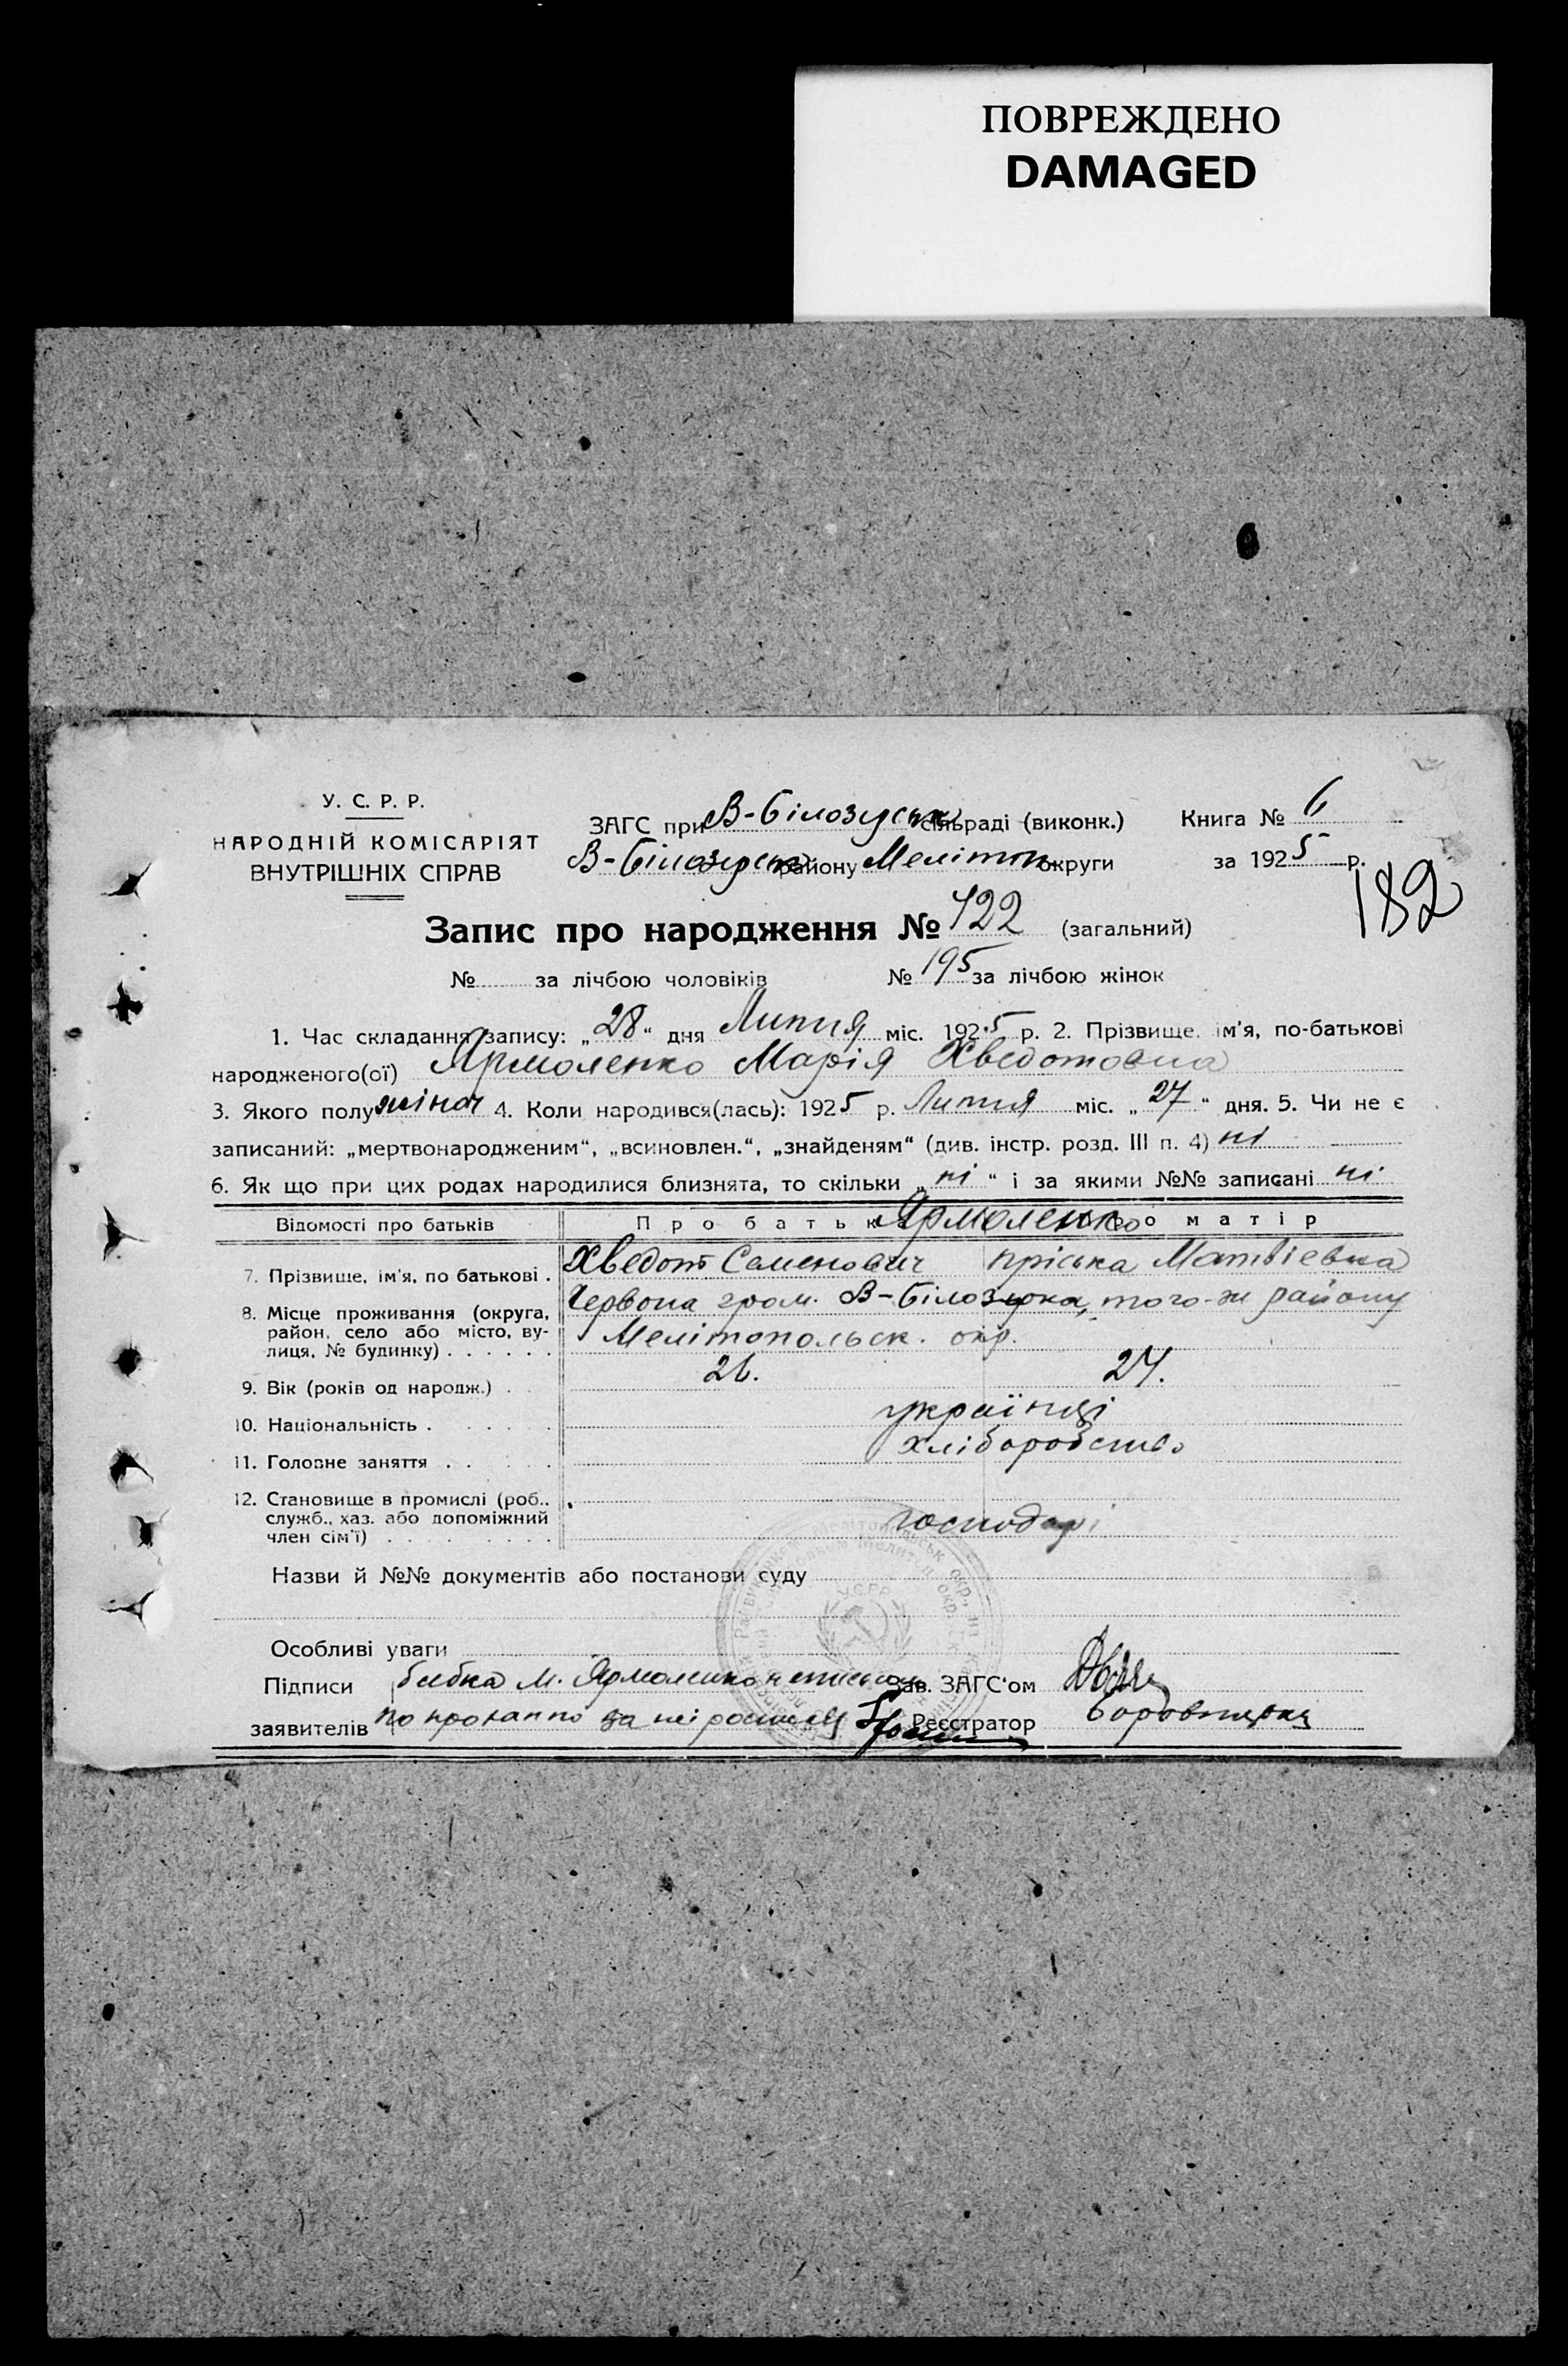 ПОВРЕЖДЕНО
DAMAGED
У. С. Р. Р.
НАРОДНІЙ КОМІСАРІЯТ
ВНУТРІШНІХ СПРАВ
ЗАГС при В-Білозуськ сільраді (виконк.)
В-Білозуськ району Мелітоп округи
Книга № 6
за 1925 р.
182
Запис про народження № 422 (загальний)
№ за лічбою чоловіків № 195 за лічбою жінок
1. Час складання запису: „28“ дня Липня міс. 1925 р. 2. Прізвище, ім'я, по-батькові
народженого(ої) Ярмоленко Марія Хведотовна
3. Якого полу жіноч 4. Коли народився(лась): 1925 р. Липня міс. „27“ дня. 5. Чи не є
записаний: „мертвонародженим“, „всиновлен.“, „знайденям“ (див. інстр. розд. III п. 4) ні
6. Як що при цих родах народилися близнята, то скільки „ні“ і за якими №№ записані ні
Відомості про батьків Про батька Ярмоленко Про матір
7. Прізвище, ім'я, по батькові . Хведот Семенович Пріська Матвієвна
8. Місце проживання (округа, район, село або місто, вулиця, № будинку) . . . . . . Червона гром. В-Білозірка, того-ж району
Мелітопольск. окр.
9. Вік (років од народж.) . 26. 24.
10. Національність . . . . . . українці
11. Головне заняття . . . . . хліборобство
12. Становище в промислі (роб., служб., хаз. або допоміжний член сім'ї) . . . . . . . . господарі
Назви й №№ документів або постанови суду
Особливі уваги
Підписи бабка М. Ярмоленко Зав. ЗАГС'ом
заявителів за неі Реєстратор